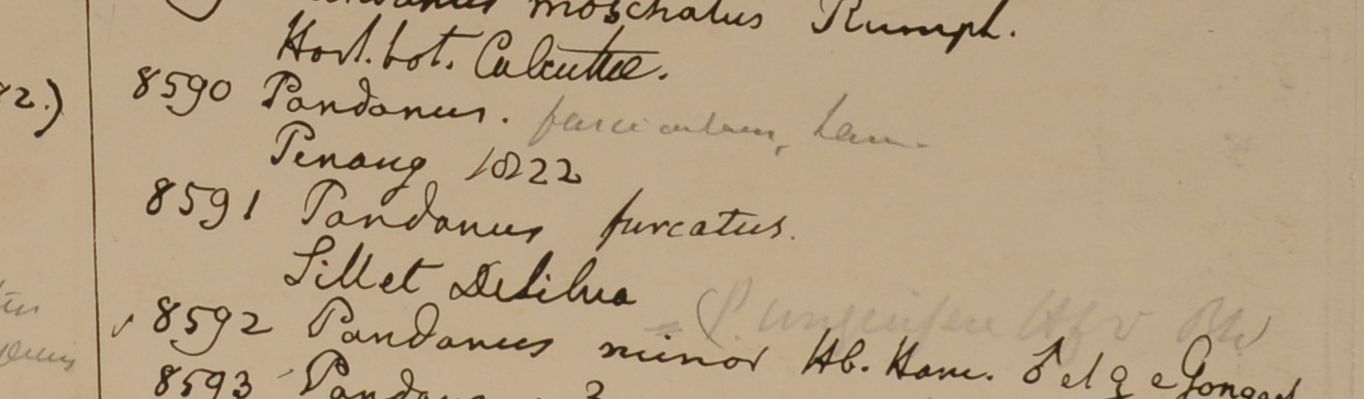 moschatus Rumph.
Hort. bot. Calcuttae.
2.)
8590 Pandanus. fascicularis, Lam.
Penang 1822
8591 Pandanus furcatus.
Sillet DeSilva
8592 Pandanus minor Hb. Ham. ♂ et ♀ e Gongach
8593